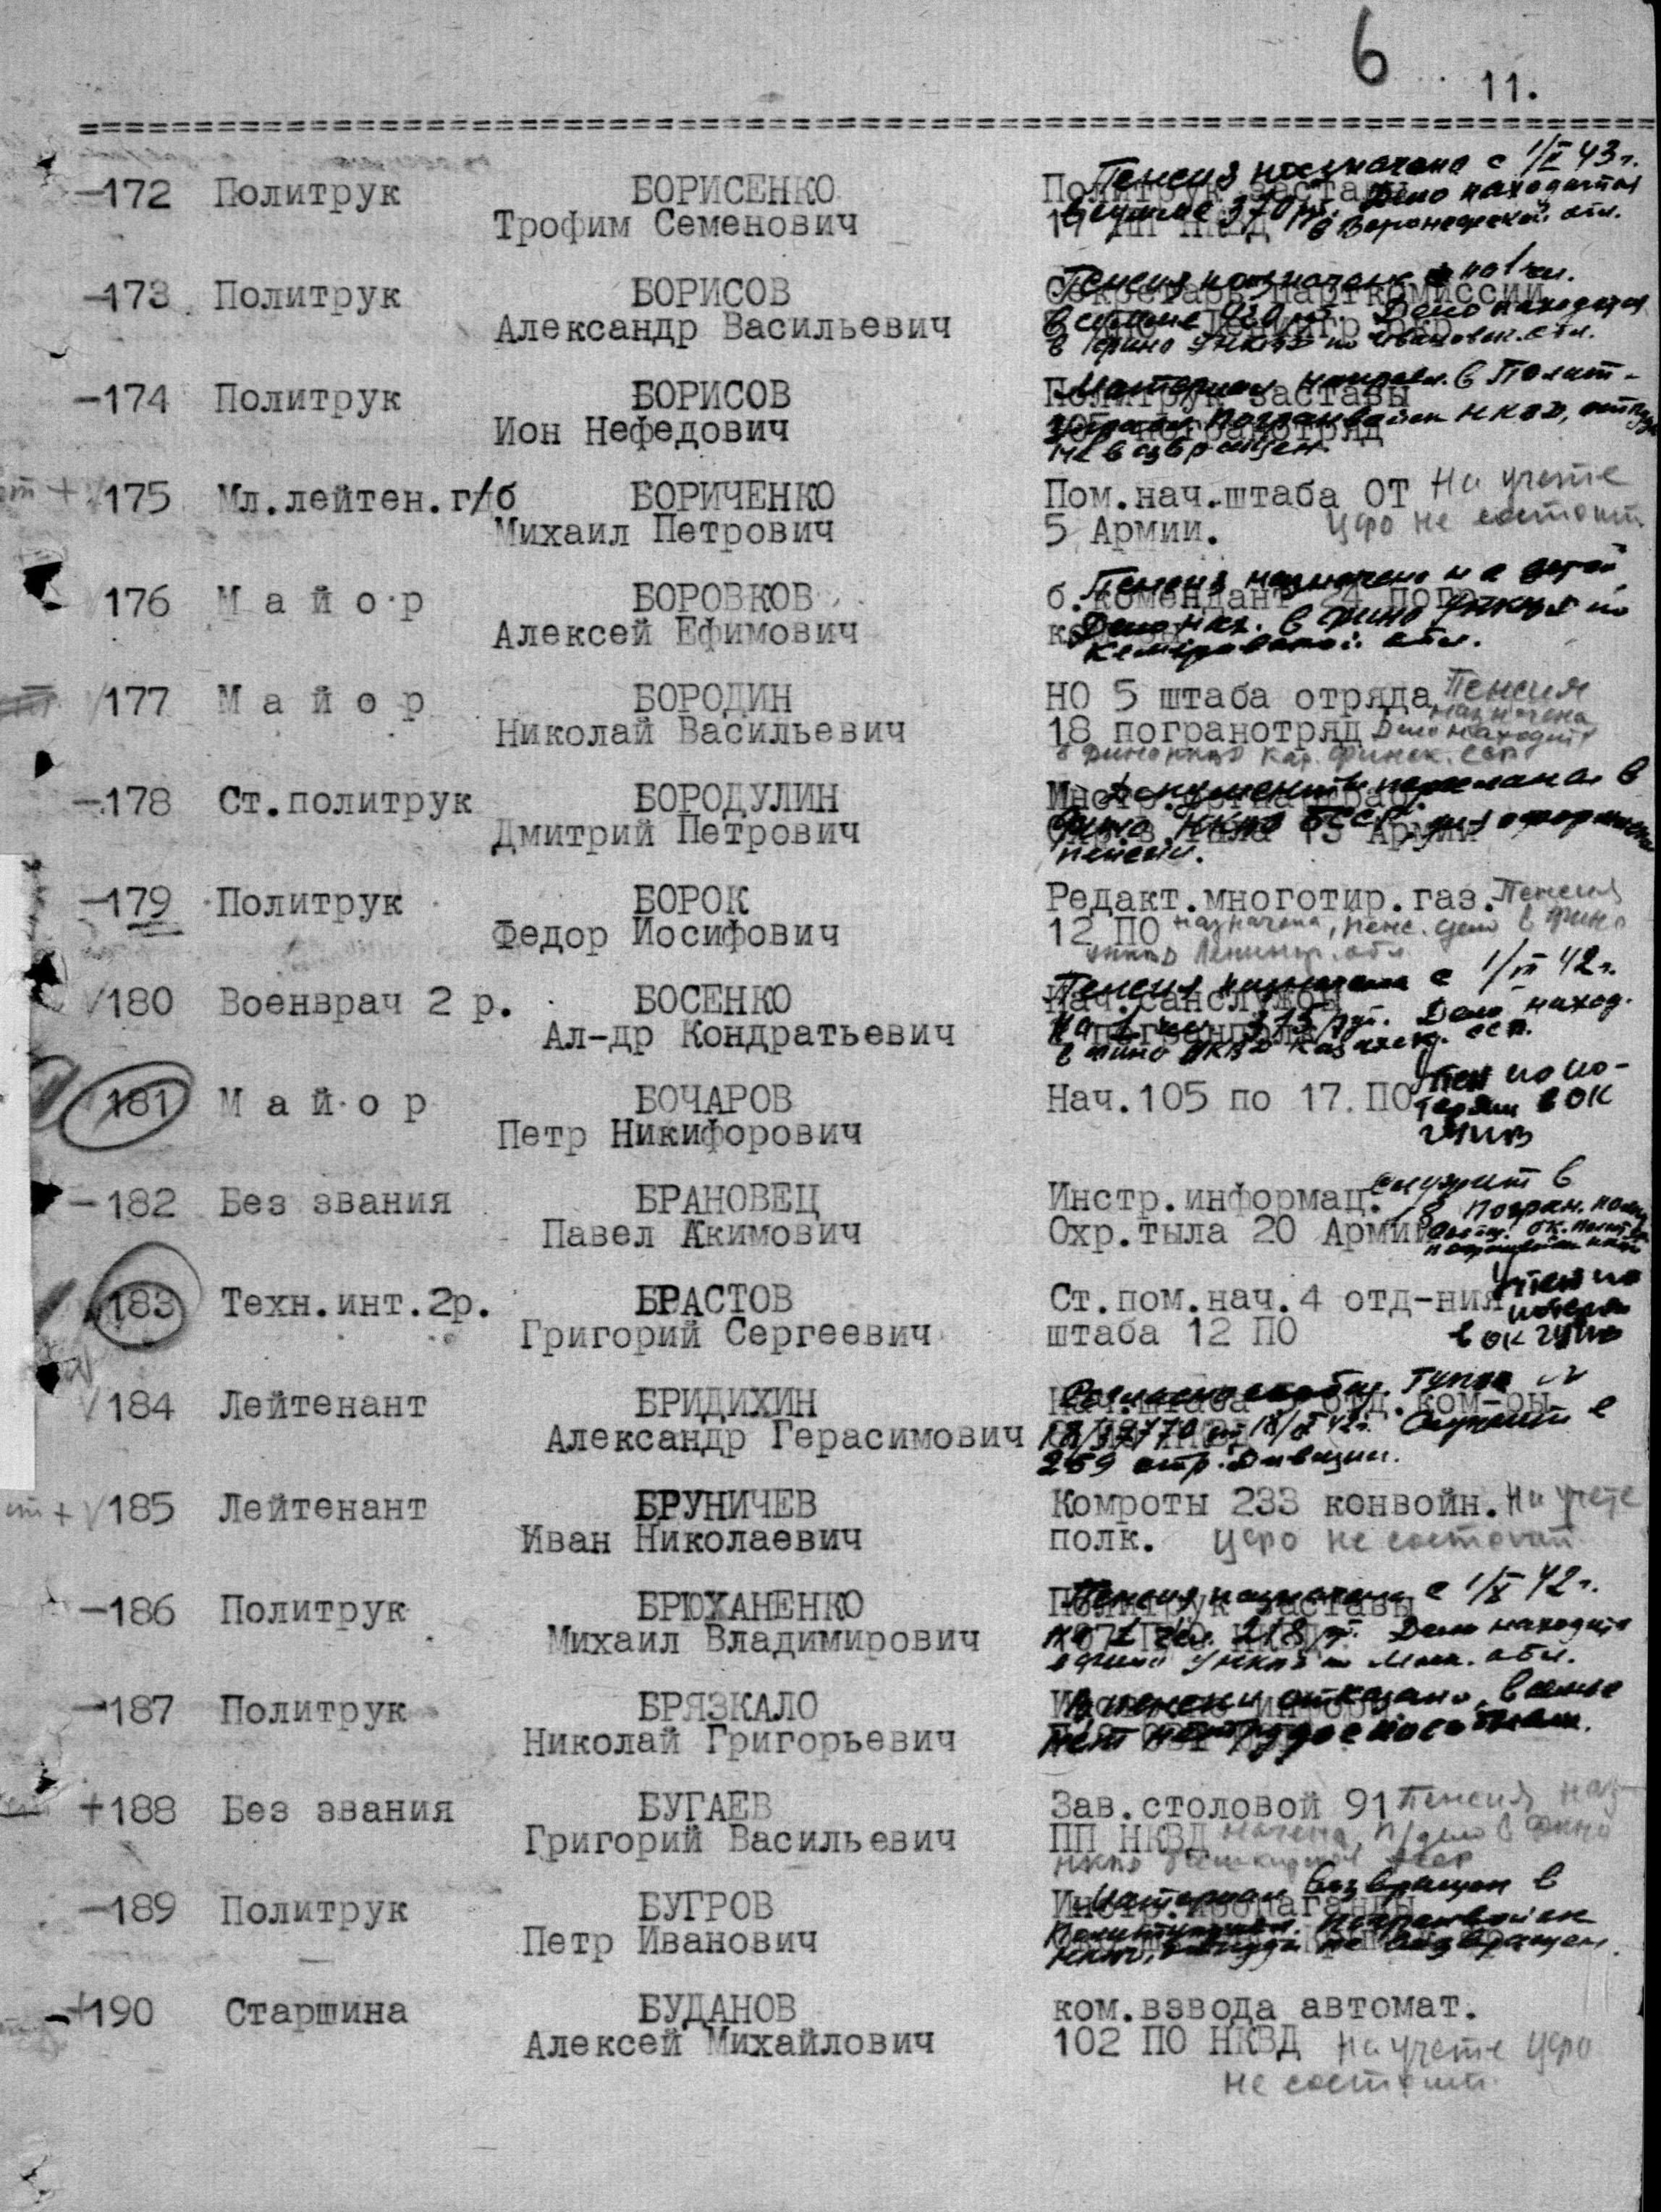 6
11.
172 Политрук БОРИСЕНКО Политрук заставы
Трофим Семенович
Пенсия назначена с 1/I 43 г.
в сумме 370 р. Дело находится
в Воронежской обл.
173 Политрук БОРИСОВ Секретарь парткомиссии
Александр Васильевич
Пенсия назначена на 1 чл.
в сумме Дело находится
в фино УНКВД по Ивановск. обл.
174 Политрук БОРИСОВ Политрук заставы
Ион Нефедович погранотряд
Материал направл. в Полит-
управл. Погранвойск НКВД, оттуда
не возвращен.
175 Мл.лейтен.г/б БОРИЧЕНКО Пом.нач.штаба ОТ На учете
Михаил Петрович 5 Армии. Цфо не состоит
176 М а й о р БОРОВКОВ б.комендант 24 погр.
Алексей Ефимович
Пенсия назначена на детей
Дело нах. в фино УНКВД по
Кемеровской обл.
177 М а й о р БОРОДИН НО 5 штаба отряда Пенсия
назначена
Николай Васильевич 18 погранотряд Дело находится
в Фино НКВД Кар. Финск. ССР
178 Ст.политрук БОРОДУЛИН
Дмитрий Петрович Охр. тыла 13 Армии
Документы пересланы в
Фино НКВД БССР для оформления
пенсии.
179 Политрук БОРОК Редакт.многотир.газ. Пенсия
Федор Иосифович 12 ПО назначена, пенс. дело в фино
УНКВД Ленингр. обл.
180 Военврач 2 р. БОСЕНКО Нач.санслужбы
Ал-др Кондратьевич
Пенсия назначена с 1/III 42 г.
на 375 руб. Дело наход.
в фино НКВД Казахск. ССР.
181 М а й о р БОЧАРОВ Нач.105 по 17.ПО Учтен по по-
Петр Никифорович терям в ОК
ГУПВ
182 Без звания БРАНОВЕЦ Инстр.информац. Служит в
Павел Акимович Охр.тыла 20 Армии
погран. полку
183 Техн.инт.2р. БРАСТОВ Ст.пом.нач.4 отд-ния Учтен по
потерям
Григорий Сергеевич штаба 12 ПО в ОК ГУПВ
184 Лейтенант БРИДИХИН Нач.штаба отд.ком-ры
Александр Герасимович
Согласно сообщ. ГУПВ №
42 г. Служит в
259 стр. дивизии.
185 Лейтенант БРУНИЧЕВ Комроты 233 конвойн. На учете
Иван Николаевич полк. Цфо не состоит
186 Политрук БРЮХАНЕНКО Политрук заставы
Михаил Владимирович
Пенсия назначена с 1/X 42 г.
на 1 чел. 218 р. Дело находится
в фино УНКВД по Моск. обл.
187 Политрук БРЯЗКАЛО
Николай Григорьевич
В пенсии отказано, в семье
нет нетрудоспособных.
188 Без звания БУГАЕВ Зав.столовой 91 Пенсия наз-
Григорий Васильевич ПП НКВД начена, п/дело в Фино
НКВД Башкирской АССР
189 Политрук БУГРОВ Инстр.пропаганды
Петр Иванович
Материал возвращен в
Политуправл. погранвойск
НКВД, оттуда не возвращен.
190 Старшина БУДАНОВ ком.взвода автомат.
Алексей Михайлович 102 ПО НКВД На учете Цфо
не состоит.